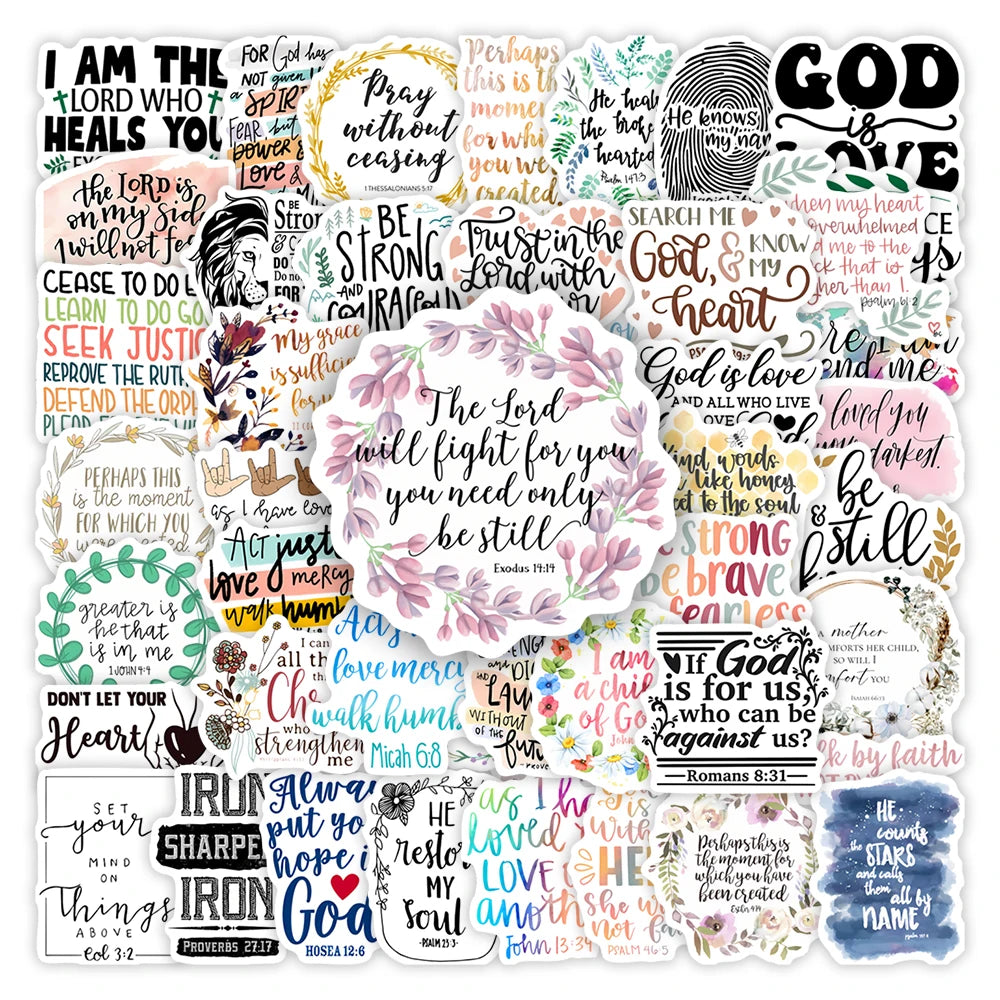 I AM THE
LORD WHO
HEALS YOU
FOR God has
not given
SPIRIT
FEAR but
power &
Love &
Pray
without
ceasing
1 THESSALONIANS 5:17
Perhaps
this is th
momen
for whi
you we
created
He heals
the broke
hearted
Psalm 147:3
He knows
my nam
GOD
is
LOVE
the LORD is
on my side
I will not fe
BE
Stron
& C
Do no
FOR
BE
STRONG
AND
COURAGEOU
Trust in the
Lord with
SEARCH ME
God, & KNOW
MY
heart
when my heart
overwhelmed
d me to the
ck that is
gher than I.
psalm 61:2
CE
is
CEASE TO DO E
LEARN TO DO GO
SEEK JUSTIC
REPROVE THE RUTH
DEFEND THE ORPH
PLEAD
My grace
is sufficie
for y
The Lord
will fight for you
you need only
be still
Exodus 14:14
God is love
AND ALL WHO LIVE
re I am
end me
I loved you
your darkest.
PERHAPS THIS
is the moment
FOR WHICH YOU
were created
as I have love
kind words
like honey
et to the soul
be
& still
ACT just
love mercy
walk humb
e strong
be brave
fearless
greater is
he that
is in me
1 JOHN 4:4
Act jus
love mercy
walk humb
Micah 6:8
I can
all th
Ch
who
strengthen
me
AND DI
LAU
WITHOUT
of the
futu
I am
a chil
of Go
John
If God
is for us,
who can be
against us?
Romans 8:31
mother
COMFORTS HER CHILD,
SO WILL I
comfort you
ISAIAH 66:13
lk by faith
DON'T LET YOUR
Heart
SET
your
MIND
ON
Things
ABOVE
Col 3:2
IRON
SHARPE
IRON
PROVERBS 27:17
Alwa
put yo
hope i
God
HOSEA 12:6
HE
resto
MY
Soul
PSALM 23:3
as I ha
loved
LOVE
anoth
John 13:34
is
with
HE
she w
not fa
PSALM 46:5
Perhaps this is
the moment for
which you have
been created
Esther 4:14
HE
counts
the STARS
and calls
them all by
NAME